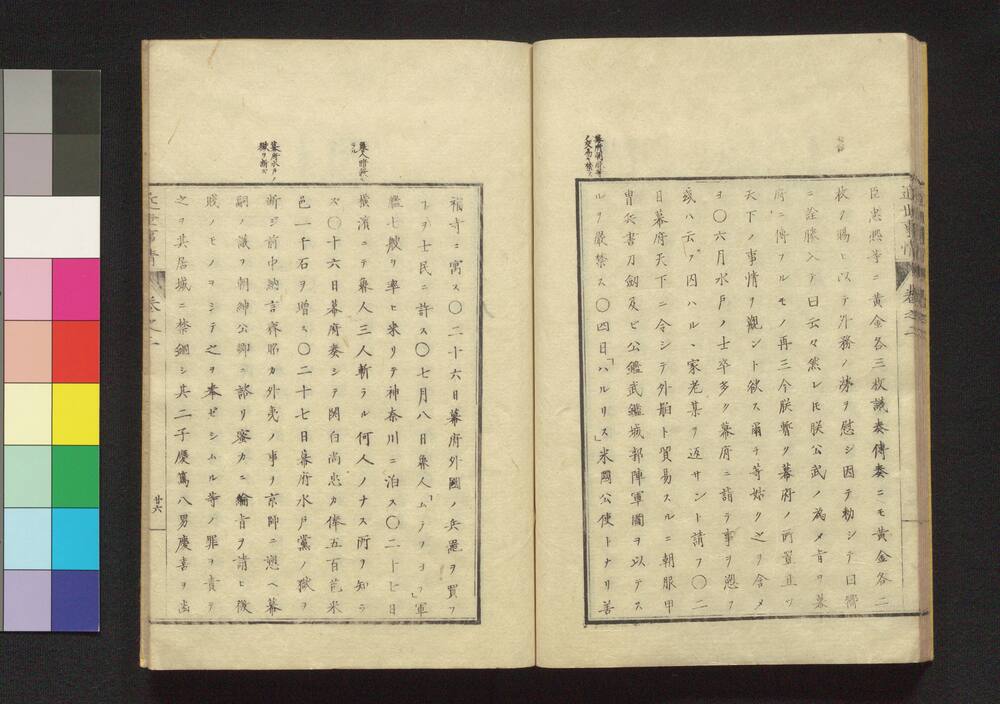 近世事情 卷之二
臣忠煕等ニ黄金各三枚議奏傳奏ニモ黄金各二
枚ヲ賜ヒ以テ外務ノ勞ヲ慰シ因テ勅シテ曰嚮
ニ詮勝入テ曰云々然レ𪜈朕公武ノ為メ旨ヲ幕
府ニ傳フルモノ再三今朕暫ク幕府ノ所置且ツ
天下ノ事情ヲ觀ント欲ス爾チ等姑ク之ヲ含メ
ヨ〇六月水戸ノ士卒多ク幕府ニ請ヲ事ヲ愬フ
或ハ云フ因ハルヽ家老某ヲ返サント請フ〇二
日幕府天下ニ令シテ外舶ト貿易スルニ朝服甲
冑兵書刀劔及ヒ公鑑武鑑城郭陣軍圖ヲ以テス
ルヲ嚴禁ス〇四日「ハルリス」米國公使トナリ善
福寺ニ寓ス〇二十六日幕府外國ノ兵噐ヲ買フ
ヿヲ士民ニ許ス〇七月八日魯人「ムラフヨフ」軍
艦七艘ヲ率ヒ來リテ神奈川ニ泊ス〇二十七日
横濱ニテ魯人三人斬ラル何人ノナス所ヲ知ラ
ス〇十六日幕府奏シテ関白尚忠カ俸五百苞米
邑一千石ヲ増ス〇二十七日幕府水戸黨ノ獄ヲ
断ジ前中納言齊昭カ外夷ノ事ヲ京師ニ愬ヘ幕
嗣ノ議ヲ朝紳公卿ニ諮リ窃カニ綸旨ヲ請ヒ微
賤ノモノヲシテ之ヲ奉ゼシムル等ノ罪ヲ責テ
之ヲ其居城ニ禁錮シ其二子慶篤八男慶喜ヲ幽
魯人暗殺セラル
幕府水戸ノ獄ヲ断ズ
近世事情 卷之二
廿六